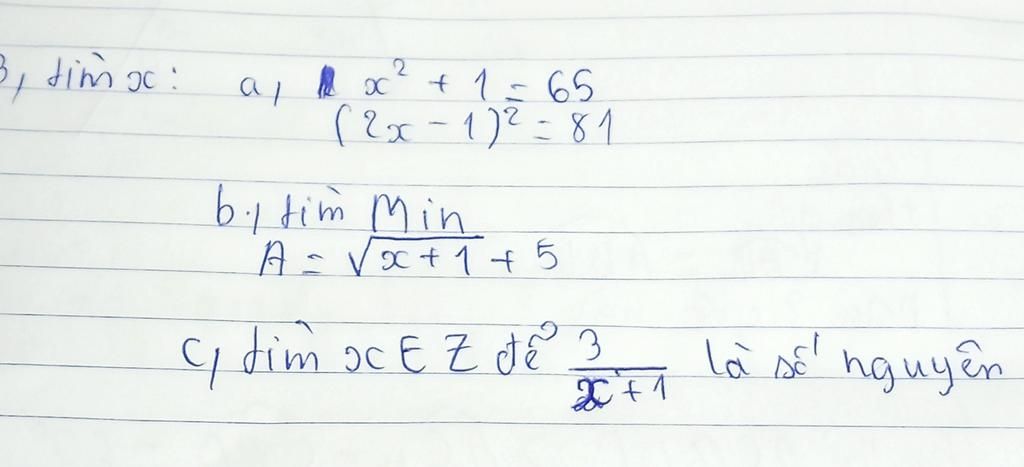 3, tìm x: a, x² + 1 = 65
(2x - 1)² = 81
b, tìm Min
A = √(x + 1) + 5
c, tìm x ∈ Z để 3/(x + 1) là số nguyên